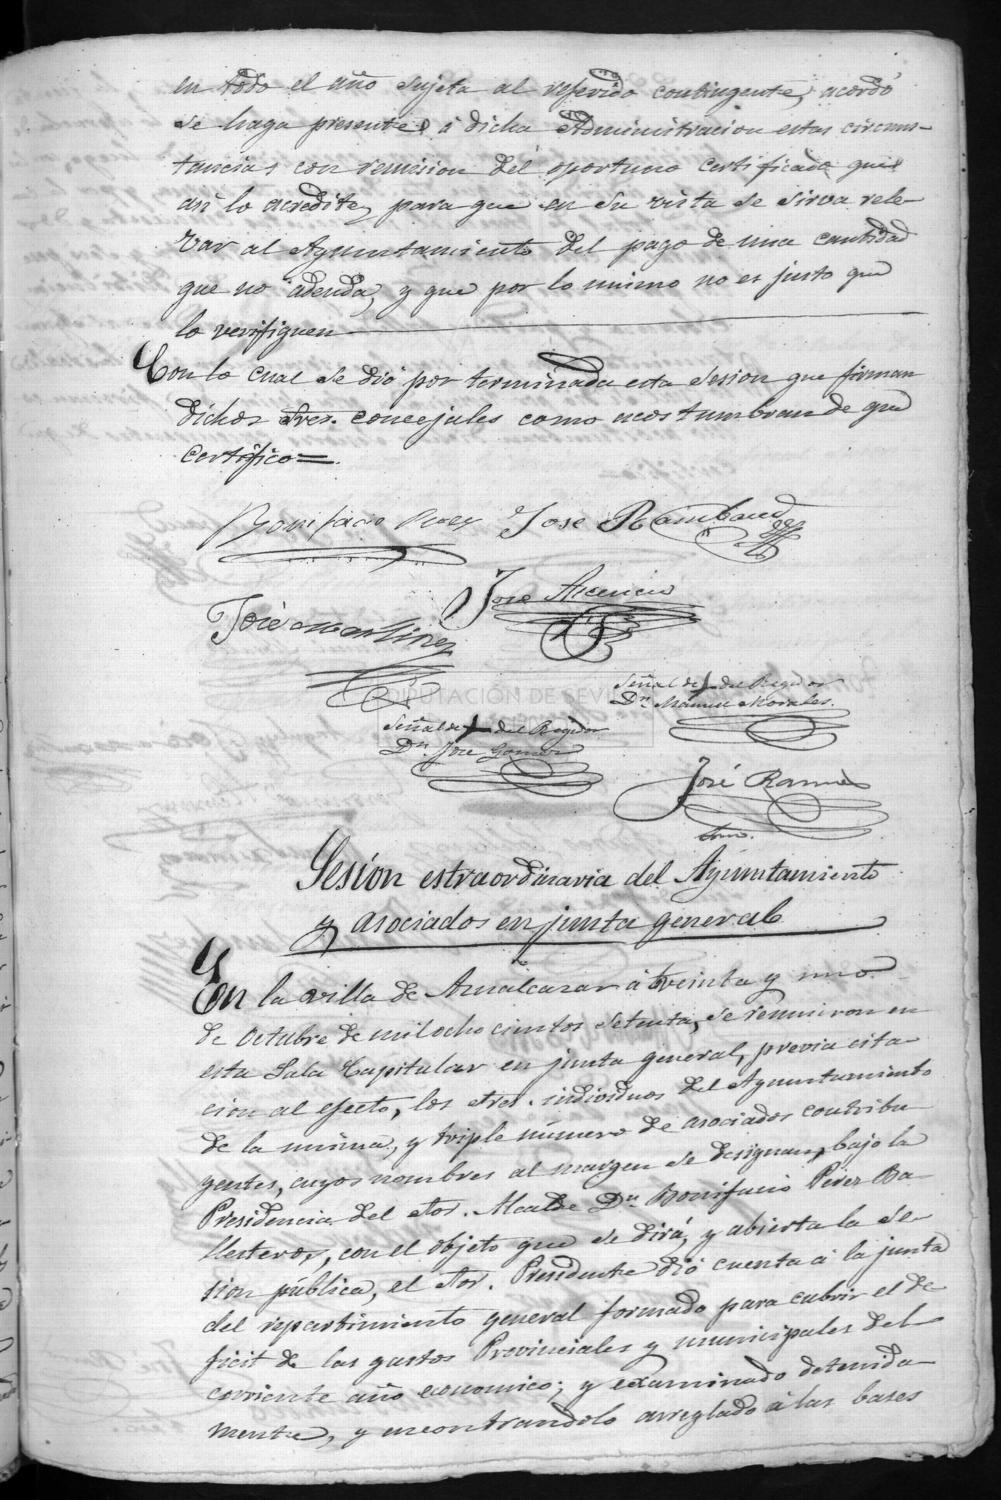 en todo el año sujeta al referido contingente, acordó
se haga presente á dicha Administracion estas circuns-
tancias con remision del oportuno certificado que
asi lo acredite, para que en su vista se sirva rele-
var al Ayuntamiento del pago de una cantidad
que no adeuda, y que por lo mismo no es justo que
lo verifiquen
Con lo cual se dió por terminada esta sesion que firman
dichos Sres. concejales como acostumbran de que
certifico=
Bonifacio Perez José Rambaud
José Ascencio
José Martinez
Señal de + del Regidor
Dn. Manuel Morales.
Señal de + del Regidor
Dn. José Gomez
José Ramos
DIPUTACIÓN DE SEVILLA
Sesión estraordinaria del Ayuntamiento
y asociados en junta general
En la villa de Aznalcazar á treinta y uno
de Octubre de mil ochocientos setenta, se reunieron en
esta Sala Capitular en junta general, previa cita-
cion al efecto, los Sres. individuos del Ayuntamiento
de la misma, y triple número de asociados contribu-
yentes, cuyos nombres al margen se designan, bajo la
Presidencia del Sor. Alcalde Dn. Bonifacio Perez Ba-
llesteros, con el objeto que se dirá, y abierta la se-
sion pública, el Sor. Presidente dió cuenta á la junta
del repartimiento general formado para cubrir el de-
ficit de los gastos Provinciales y municipales del
corriente año economico; y examinado detenida-
mente, y encontrandolo arreglado á las bases